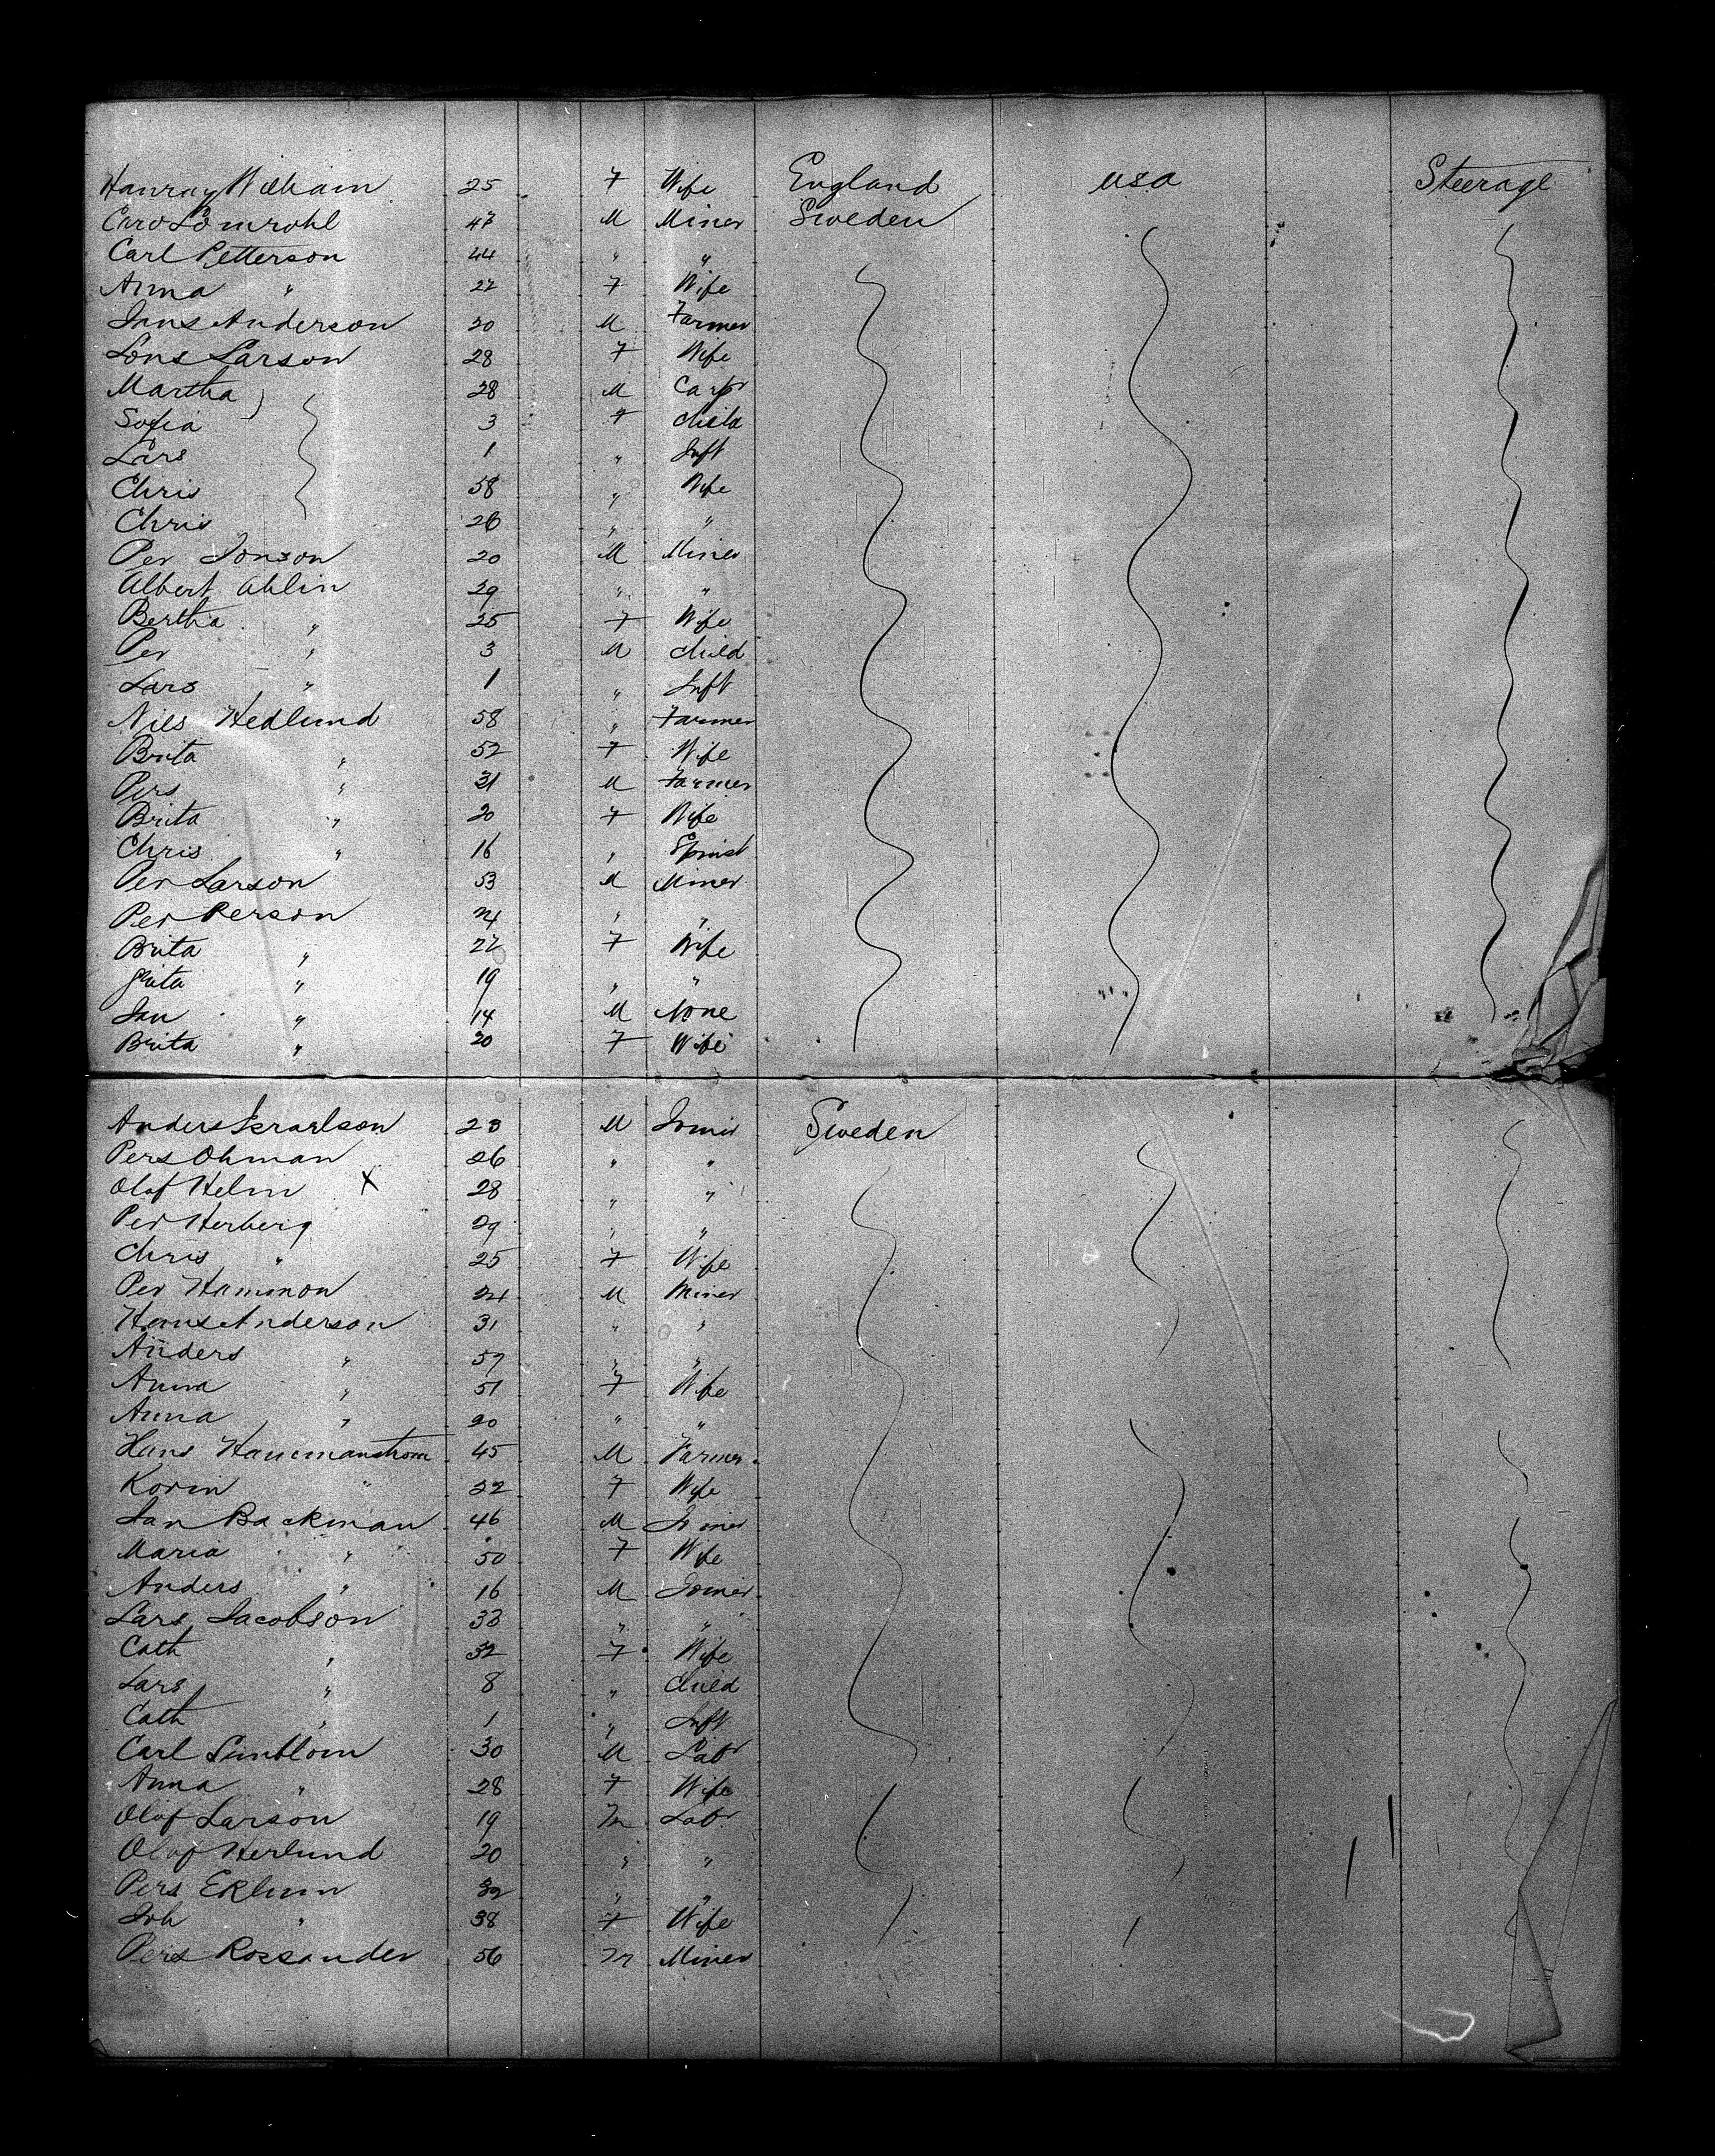 Hanray William 25 F Wife England USA Steerage
Caro Lomrohl 47 M Miner Sweden
Carl Petterson 44 " "
Anna " 27 F Wife
Jans Anderson 20 M Farmer
Lons Larson 28 F Wife
Martha 28 M Carpr
Sofia 3 F Child
Lars 1 " Inft
Chris 58 " Wife
Chris 26 " "
Per Jonson 20 M Miner
Albert Ahlin 29 " "
Bertha " 25 F Wife
Per " 3 M Child
Lars " 1 " Inft
Nils Hedlund 58 " Farmer
Brita " 52 F Wife
Pers " 31 M Farmer
Brita " 20 F Wife
Chris " 16 " Spinst
Per Larson 53 M Miner
Per Person 24 " "
Brita " 27 F Wife
" 19 " "
Jan " 14 M None
Brita " 20 F Wife
Anders 23 M Joiner Sweden
Pers Ohman 26 " "
Olof Helm X 28 " "
Per Herberg 29 " "
Chris " 25 F Wife
Per Hammon 24 M Miner
Hans Anderson 31 " "
Anders " 57 " "
Anna " 51 F Wife
Anna " 20 " "
Hans Hammanstrom 45 M Farmer
Korin " 32 F Wife
Jan Backman 46 M Joiner
Maria " 50 F Wife
Anders " 16 M Joiner
Lars Jacobson 33 " "
Cath " 32 F Wife
Lars " 8 " Child
Cath " 1 " Inft
Carl Simblom 30 M Labr
Anna " 28 F Wife
Olof Larson 19 M Labr
Olof Herlund 20 " "
Pers Eklunn 32 " "
Joh " 38 F Wife
Pers Rossander 56 M Miner